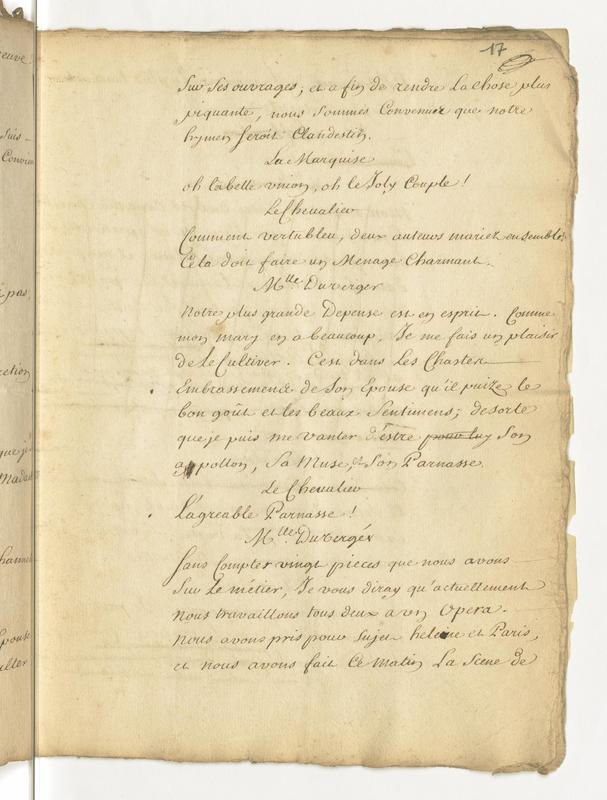 17
euve
suis-
Convien
pas
retion
que j'
Madam
hanne
Epouse
ulter
Sur Ses ouvrages, et afin de rendre La chose plus
piquante, nous Sommes Convenues que notre
hymen Seroit Clandestin.
La Marquise
oh la belle union, oh le Joly Couple!
Le Chevalier
Comment vertubleu, deux auteurs mariez ensemble,
Cela doit faire un Menage Charmant.
Mlle Duverger
Notre plus grande Depense est en esprit. Comme
mon mary en a beaucoup, Je me fais un plaisir
de le Cultiver. C'est dans Les Chastes
Embrassemens de Son Epouse qu'il puize le
bon goût et les beaux Sentimens; desorte
que je puis me vanter d'estre pour luy Son
appollon, Sa Muse, et Son Parnasse.
Le Chevalier
L'agreable Parnasse!
Mlle Duverger
Sans Compter vingt pieces que nous avons
Sur Le métier, Je vous diray qu'actuellement
nous travaillons tous deux à un Opera.
Nous avons pris pour Sujet heleine et Paris,
et nous avons fait Ce Matin La Scene de